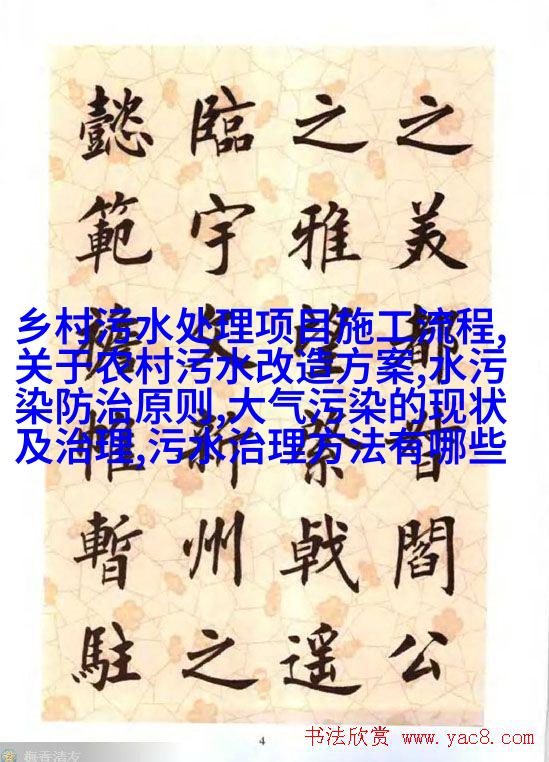 之美都督閻公
之雅望棨戟遥
臨宇文新州之
懿範襜帷暫駐
乡村污水处理项目施工流程,
关于农村污水改造方案,水污
染防治原则,大气污染的现状
及治理,污水治理方法有哪些
4
书法欣赏 www.yac8.com